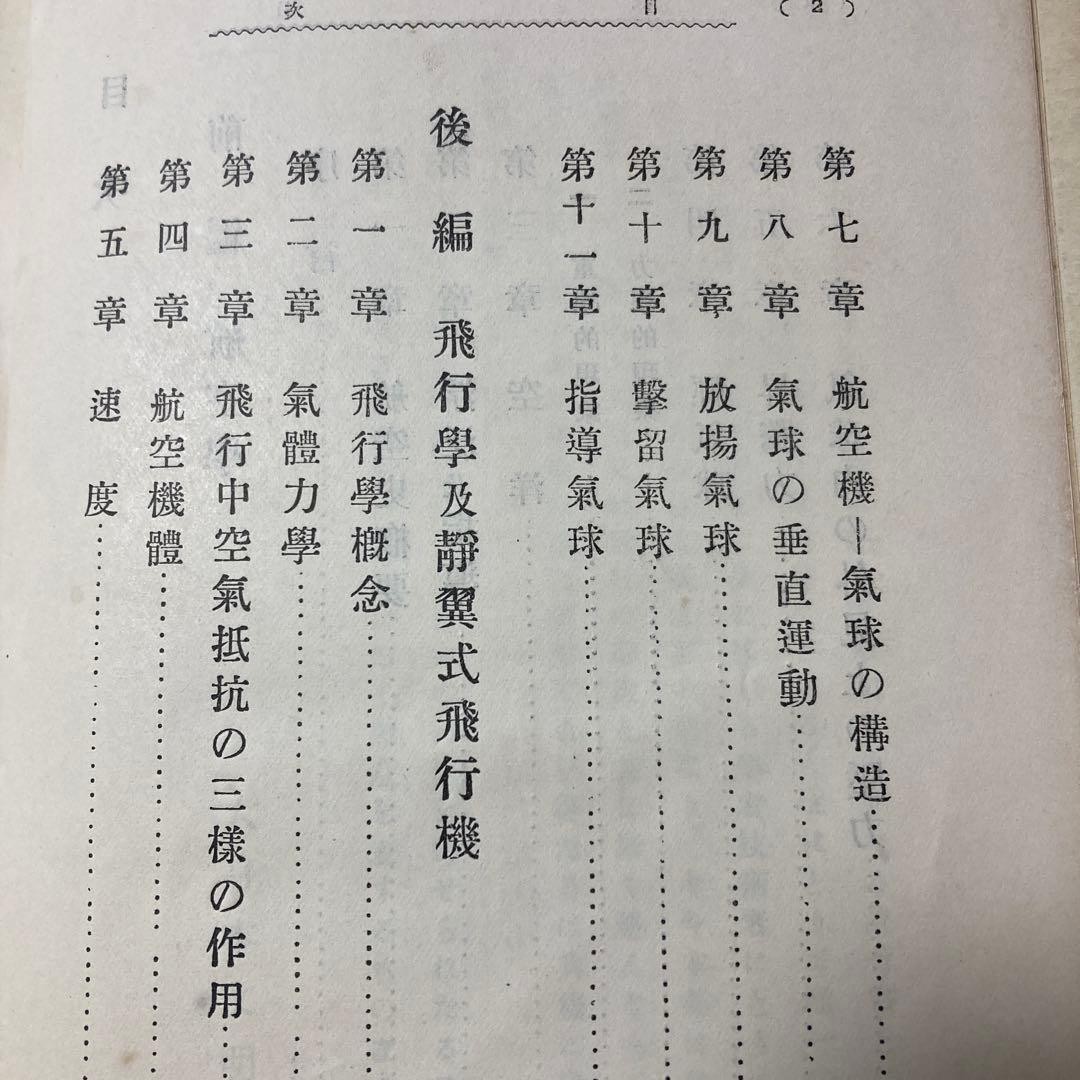 (2)
目次
第七章 航空機―氣球の構造
第八章 氣球の垂直運動
第九章 放揚氣球
第十章 繫留氣球
第十一章 指導氣球
後編 飛行學及靜翼式飛行機
第一章 飛行學概念
第二章 氣體力學
第三章 飛行中空氣抵抗の三樣の作用
第四章 航空機體
第五章 速度